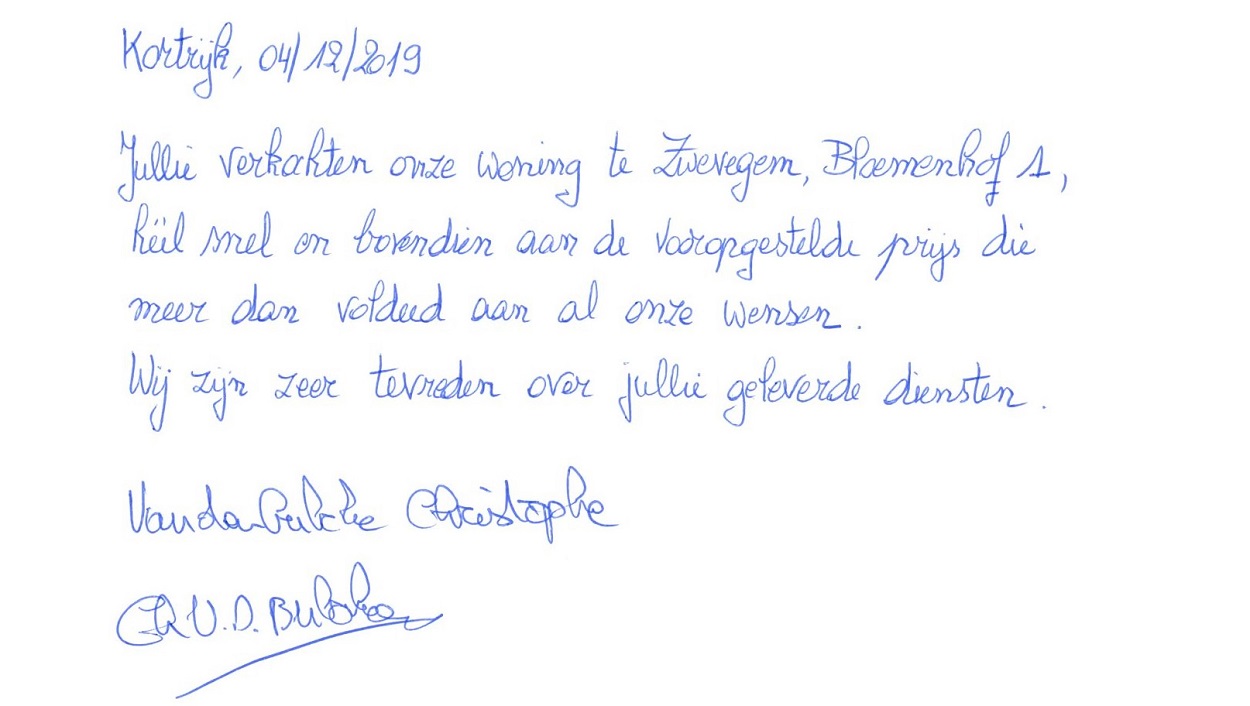 Kortrijk, 04/12/2019
Jullie verkochten onze woning te Zwevegem, Bloemenhof 1,
heel snel en bovendien aan de vooropgestelde prijs die
meer dan voldeed aan al onze wensen.
Wij zijn zeer tevreden over jullie geleverde diensten.
Christophe
Ch V.D.